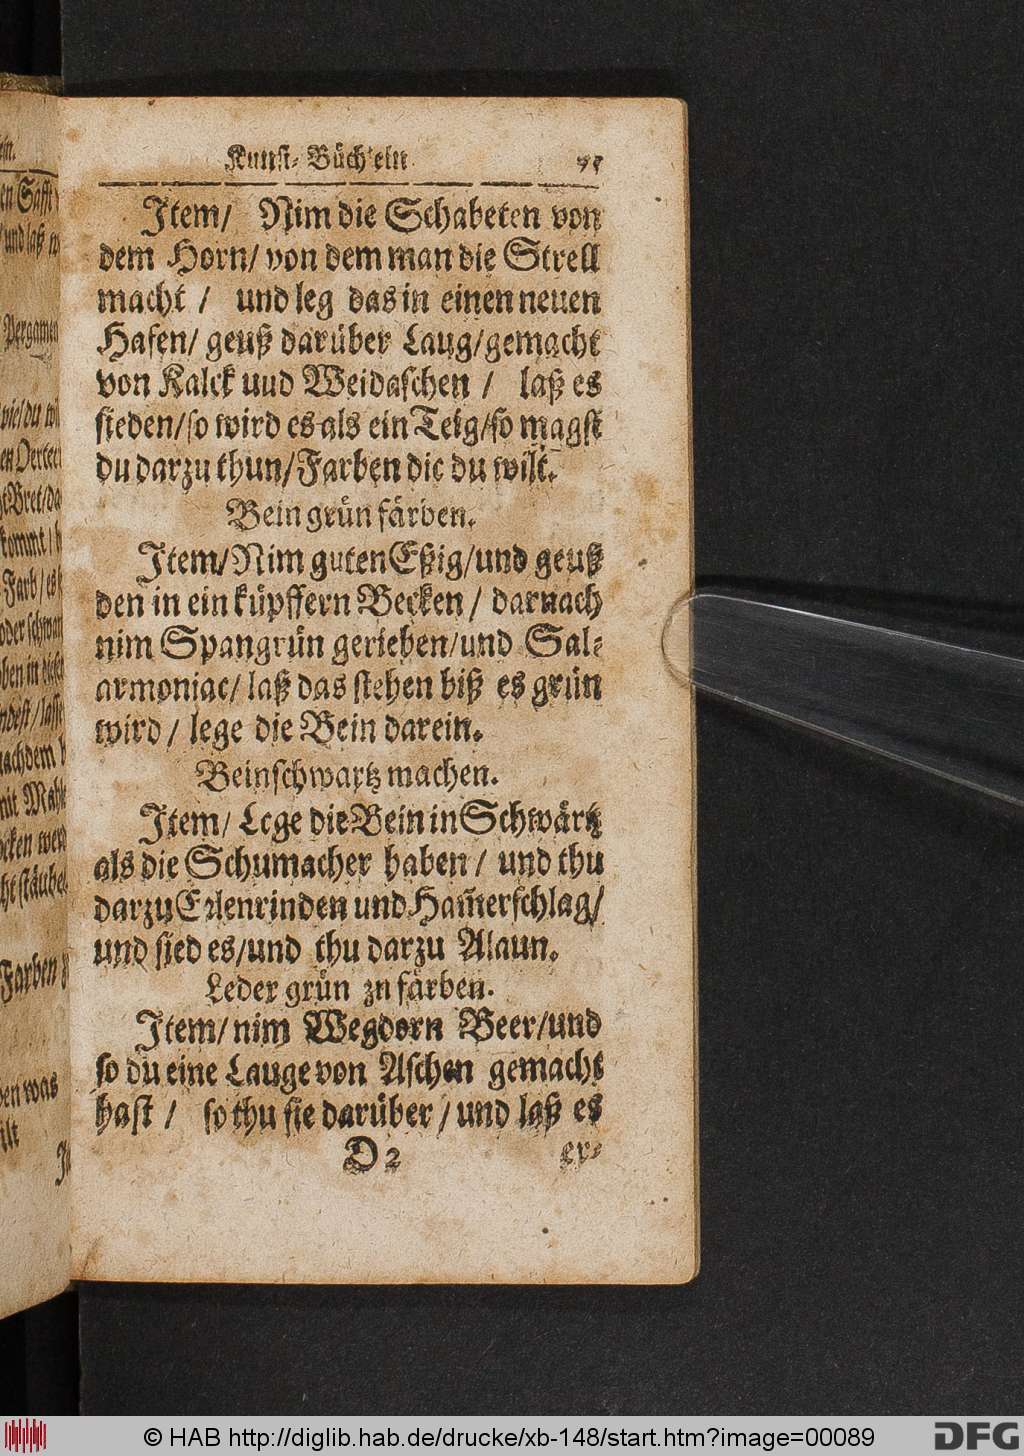 Kunst- Büchꝛeln 77
Item/ Nim die Schabeten von
dem Horn/ von dem man die Strell
macht / und leg das in einen neuen
Hafen/ geuß darüber Laug/gemacht
von Kalck uud Weidaschen / laß es
sieden/so wird es als ein Teig/so magst
du darzu thun/Farben die du wilt.
Bein grün färben.
Item/Nim guten Eßig/und geuß
den in ein küpffern Becken / darnach
nim Spangrün gerieben/und Sal-
armoniac/ laß das stehen biß es grün
wird / lege die Bein darein.
Bein schwartz machen.
Item/ Lege die Bein in Schwärtz
als die Schumacher haben / und thu
darzu Erlenrinden und Ham̃erschlag/
und sied es/und thu darzu Alaun.
Leder grün zu färben.
Item/ nim Wegdorn Beer/und
so du eine Lauge von Aschen gemacht
hast / so thu sie darüber / und laß es
D 2 er-
© HAB http://diglib.hab.de/drucke/xb-148/start.htm?image=00089
DFG